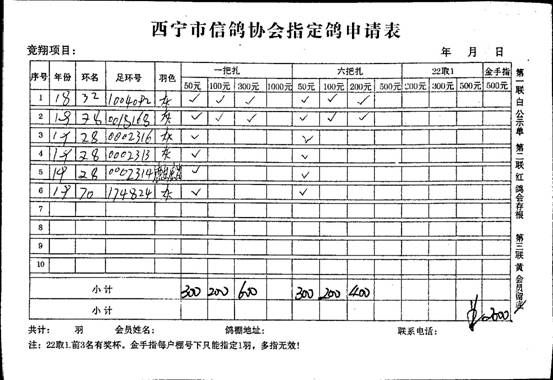 西宁市信鸽协会指定鸽申请表
竞翔项目： 年 月 日
序号 年份 环名 足环号 羽色 一把扎 六把扎 22取1 金手指
50元 100元 300元 1000元 50元 100元 200元 50元 200元 300元 500元 500元
1 18 32 1004082 灰 ✓ ✓ ✓ ✓ ✓ ✓
2 18 28 0018168 灰 ✓ ✓ ✓ ✓ ✓ ✓
3 18 28 0002316 灰 ✓ ✓
4 18 28 0002313 灰 ✓ ✓
5 19 28 0002314 ✓ ✓
6 19 70 174824 灰 ✓ ✓
7
8
9
10
小计 300 200 600 300 200 400
小计
共计： 羽 会员姓名： 鸽棚地址： 联系电话：
注：22取1.前3名有奖杯。金手指每户棚号下只能指定1羽，多指无效！
第一联 白 公示单 第二联 红 鸽会存根 第三联 黄 会员留底